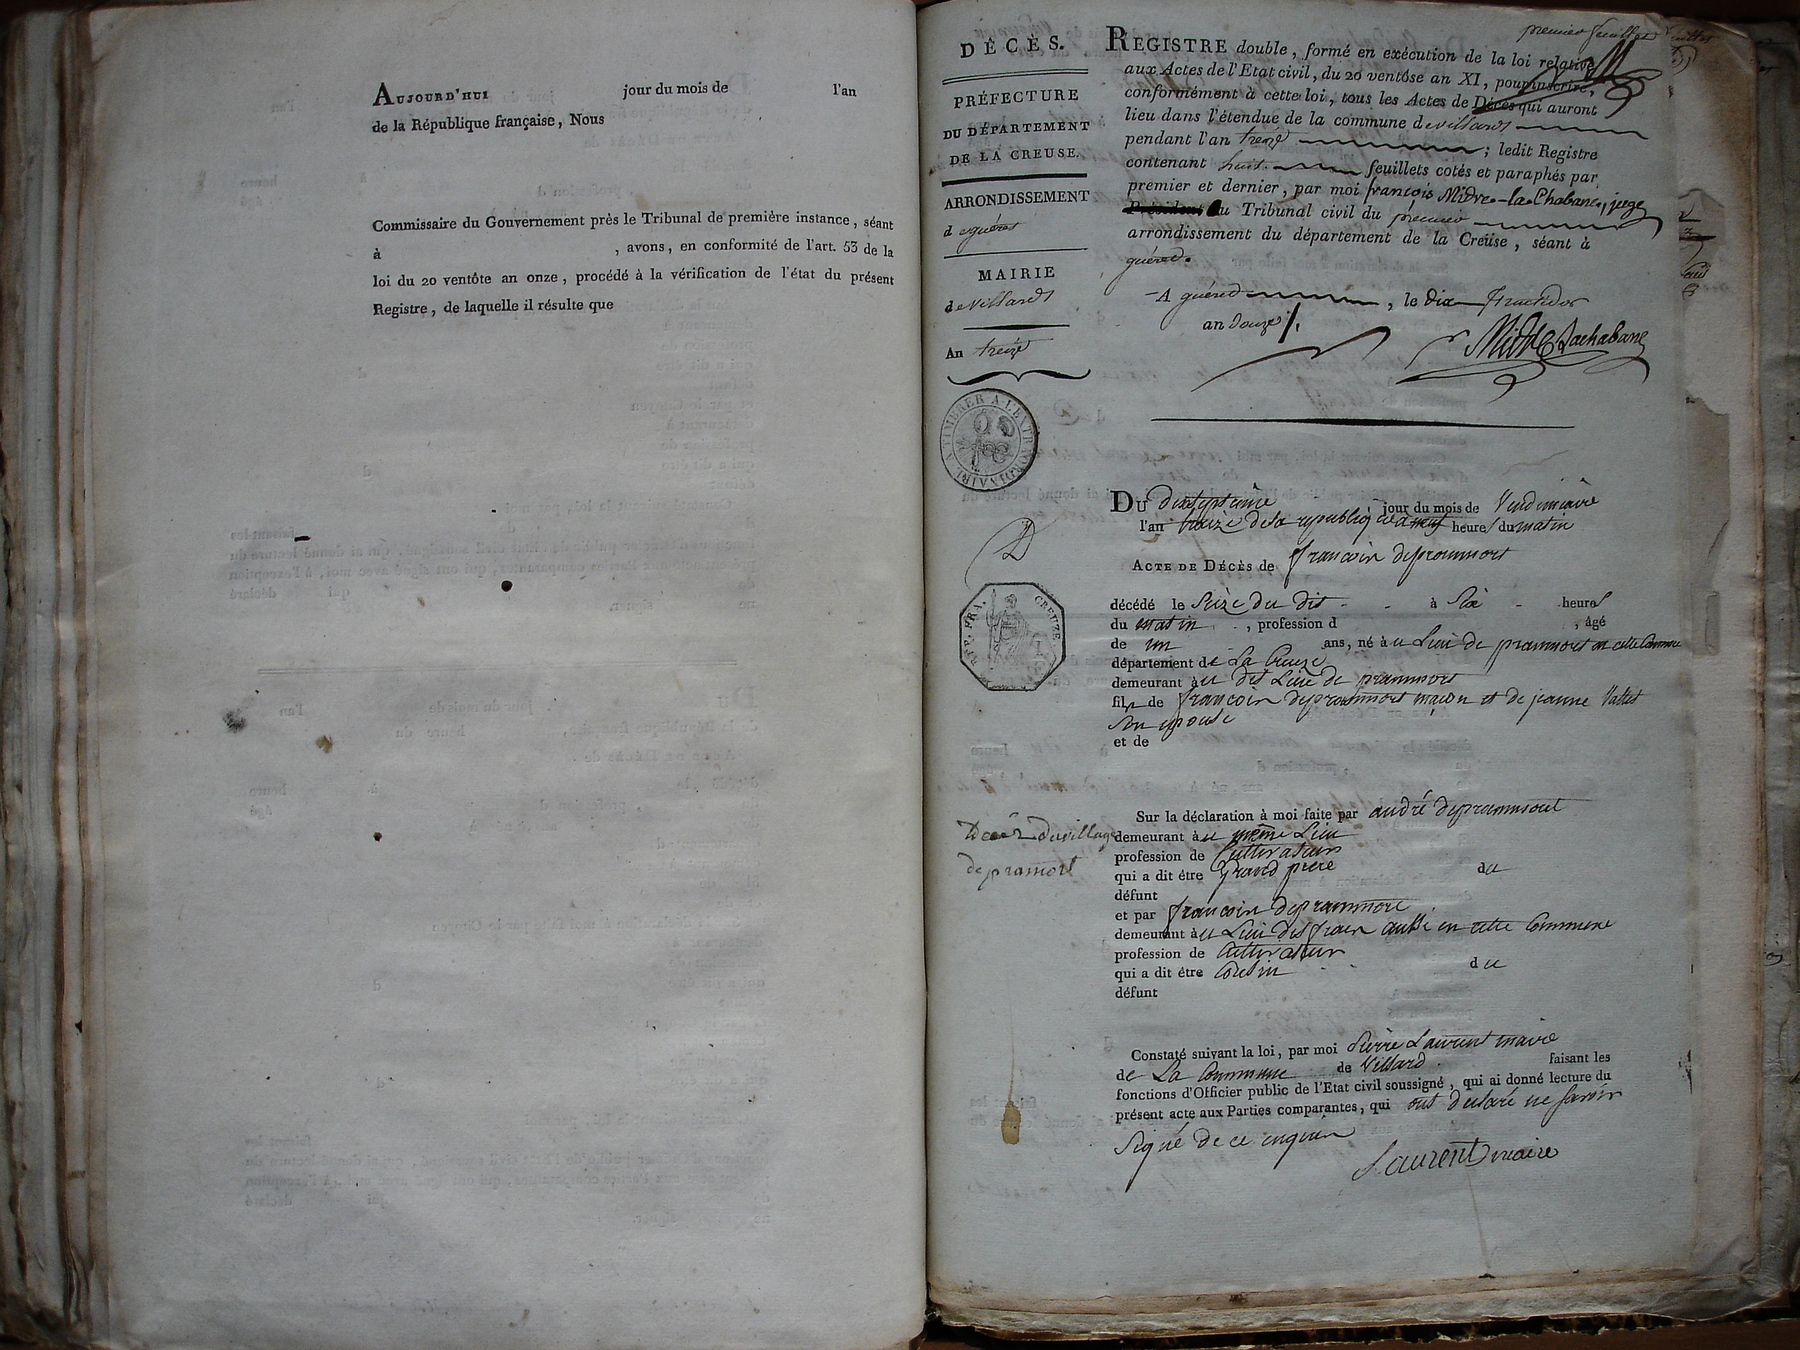 AUJOURD'HUI jour du mois de l'an
de la République française, Nous
Commissaire du Gouvernement près le Tribunal de première instance, séant
à , avons, en conformité de l'art. 53 de la
loi du 20 ventôte an onze, procédé à la vérification de l'état du présent
Registre, de laquelle il résulte que
premier feuillet
DÉCÈS.
PRÉFECTURE
DU DÉPARTEMENT
DE LA CREUSE.
ARRONDISSEMENT
d eguéret
MAIRIE
de Villards
An treize
A TIMBRER A L'EXTRAORDINAIRE
REGISTRE double, formé en exécution de la loi relative
aux Actes de l'Etat civil, du 20 ventôse an XI, pour inscrire,
conformément à cette loi, tous les Actes de Décès qui auront
lieu dans l'étendue de la commune de villards
pendant l'an treize ; ledit Registre
contenant huit feuillets cotés et paraphés par
premier et dernier, par moi françois Midre-la-Chabane, juge
Président du Tribunal civil du premier
arrondissement du département de la Creuse, séant à
guéret.
A guéret , le dix fructidor
an douze /.
Midre Lachabane
REP. FRA. CREUZE
DU dixseptieme jour du mois de Vendimiaire
l'an treize de la republiq à neuf heures du matin
ACTE DE DÉCÈS de françois deprammort
décédé le Seize du dit à Six heures
du matin , profession d , âgé
de un ans, né à u Lieu de prammort en cette Commune
département de La Creuze
demeurant à u dit Lieu de prammort
fils de françois deprammort maçon et de jeanne Vallet
Son epouse
et de
Décès du village
de pramort
Sur la déclaration à moi faite par andré deprammort
demeurant à u même Lieu
profession de Cultivateur
qui a dit être grand père du
défunt
et par françois deprammort
demeurant à u Lieu des aussi en cette Commune
profession de Cultivateur
qui a dit être Cousin du
défunt
Constaté suivant la loi, par moi Pierre Laurent maire
de La Commune de Villard faisant les
fonctions d'Officier public de l'Etat civil soussigné, qui ai donné lecture du
présent acte aux Parties comparantes, qui ont declaré ne savoir
Signé de ce enquis
Laurent maire